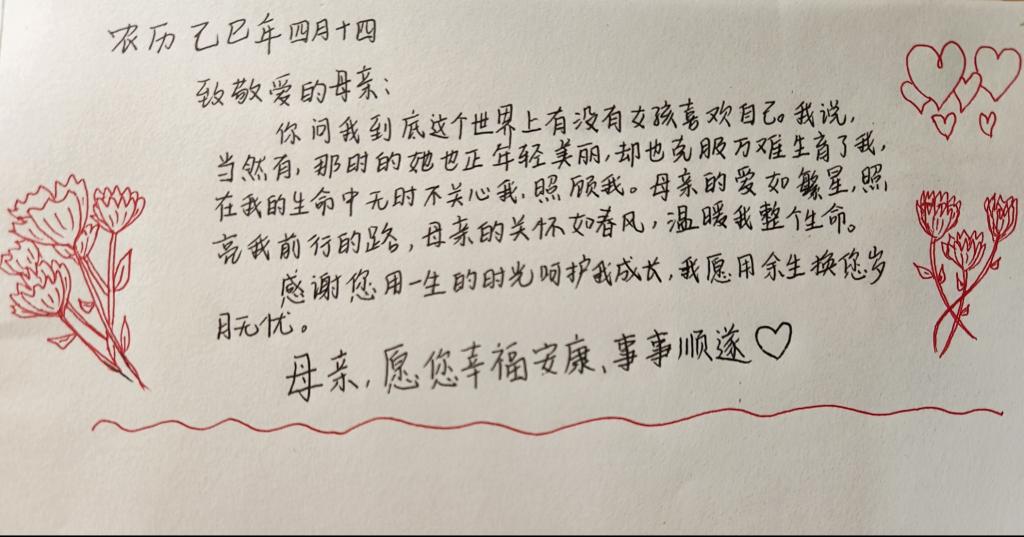 农历乙巳年四月十四
致敬爱的母亲:
你问我到底这个世界上有没有女孩喜欢自己。我说,
当然有,那时的她也正年轻美丽,却也克服万难生育了我,
在我的生命中无时不关心我,照顾我。母亲的爱如繁星,照
亮我前行的路,母亲的关怀如春风,温暖我整个生命。
感谢您用一生的时光呵护我成长,我愿用余生换您岁
月无忧。
母亲,愿您幸福安康、事事顺遂♡